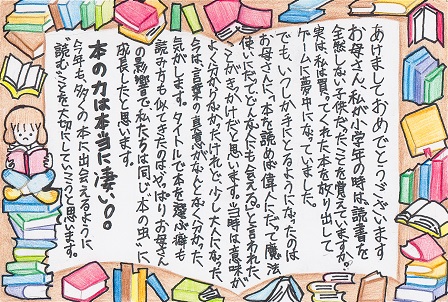 あけましておめでとうございます
お母さん、私が小学年の時は読書を
全然しない子供だったことを覚えていますか。
実は私は買ってくれた本を放り出して
ゲームに夢中になっていました。
でも、いつしか手にとるようになったのは
お母さんに「本を読めば偉人にだって魔法
使いにだって、どんな人にも会える。」と言われた
ことがきっかけだと思います。当時は意味が
よく分からなかったけれど、少し大人になった
今は、言葉の真意がなんとなく分かった
気がします。タイトルで本を選ぶ癖も
読み方も似てきたのは、やっぱりお母さん
の影響で、私たちは同じ“本の虫”に
成長したと思います。
本の力は本当に凄い。
今年も、多くの本に出会えるように
“読む”ことを大切にしていこうと思います。